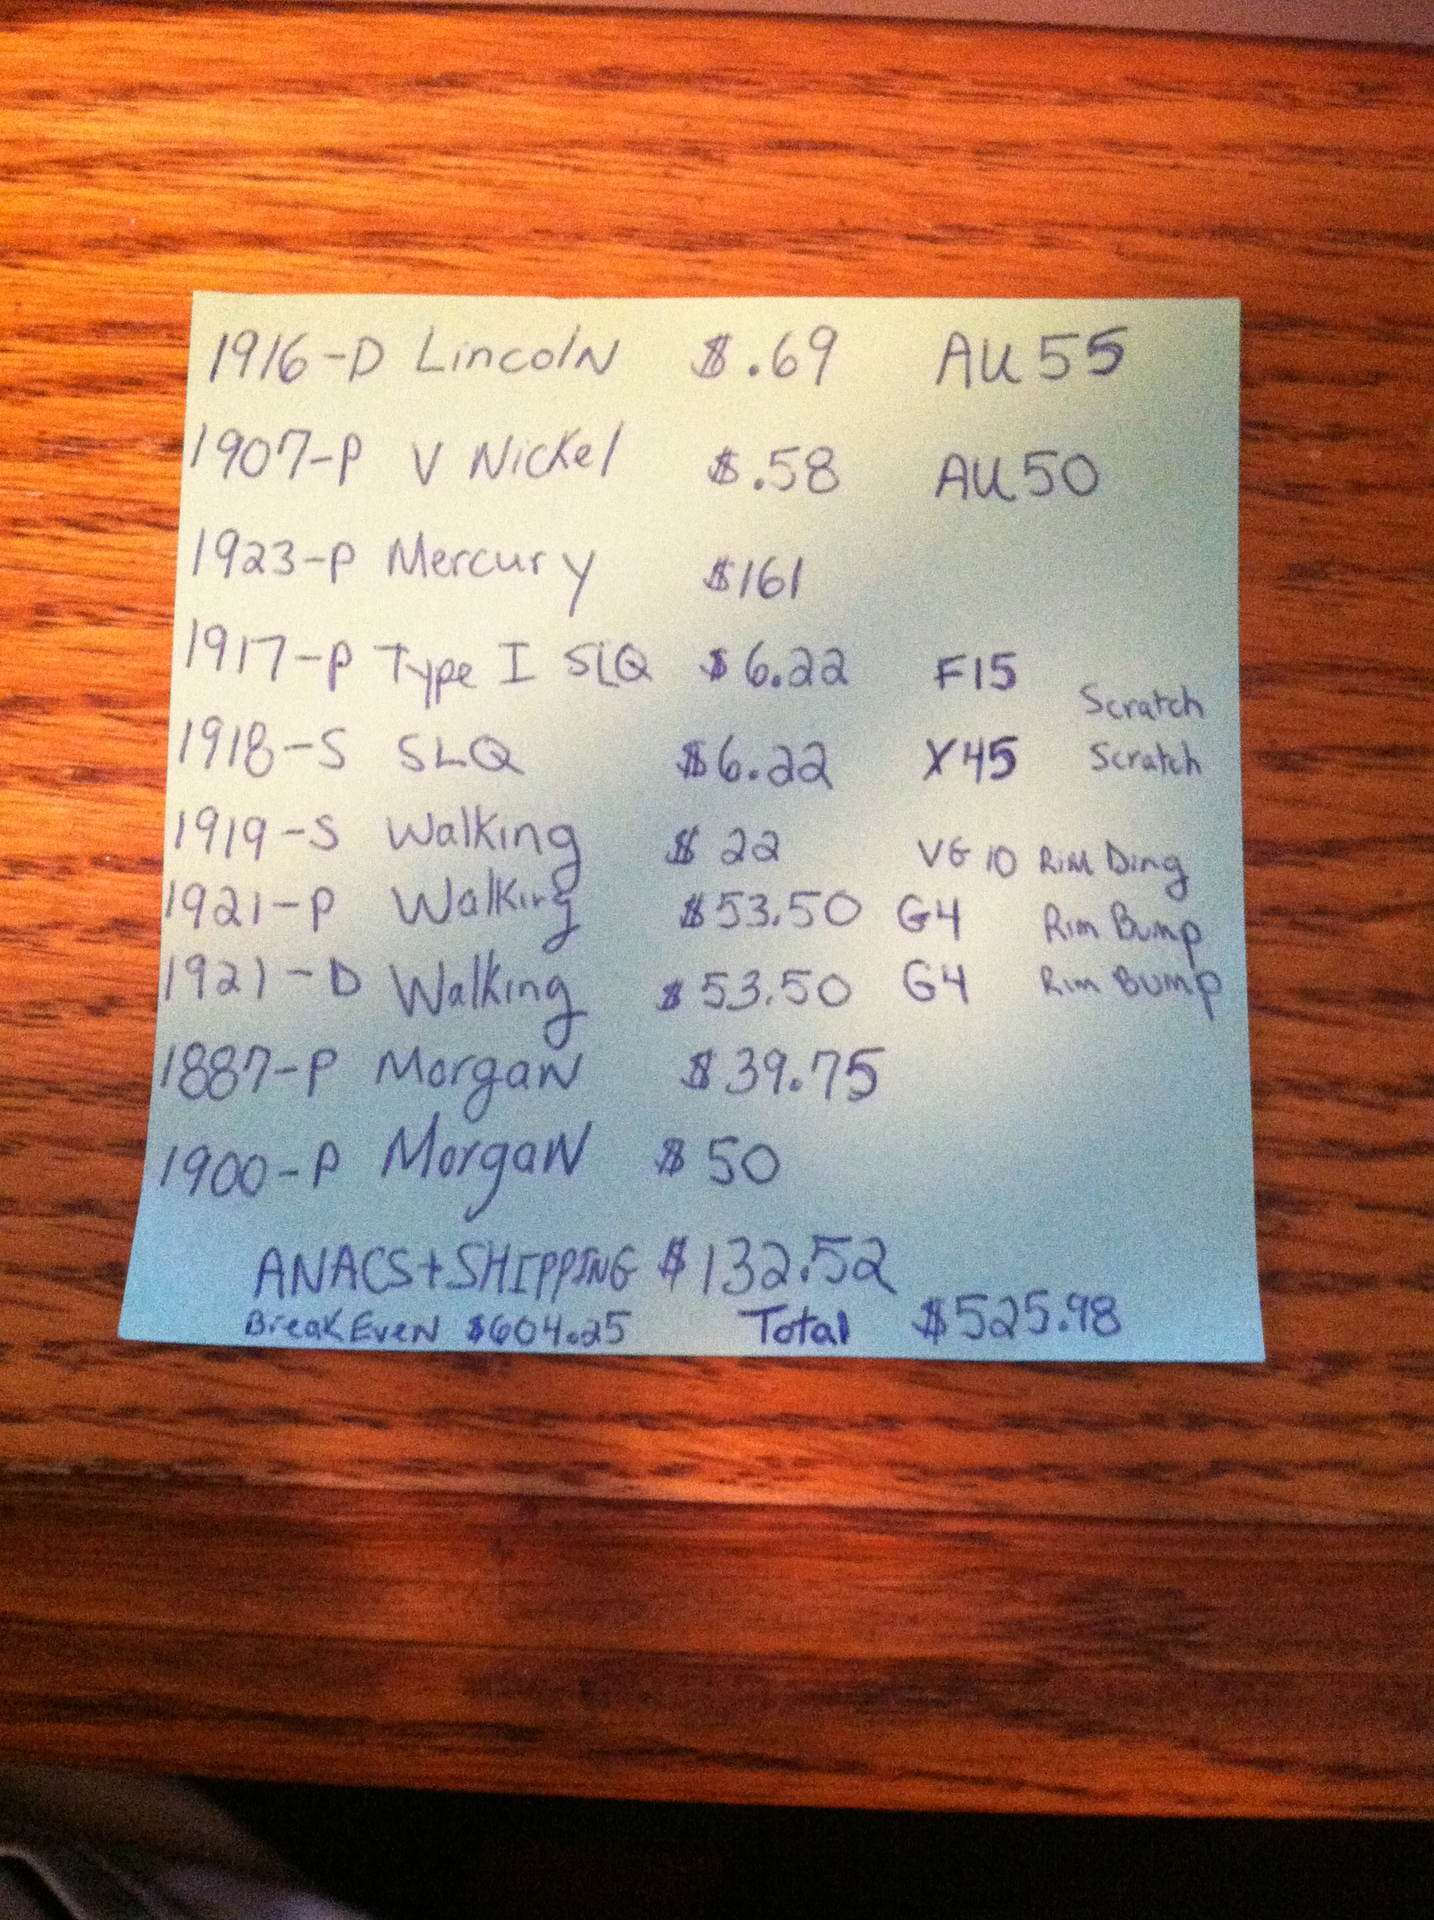 1916-D Lincoln $.69 AU55
1907-P V Nickel $.58 AU50
1923-P Mercury $161
1917-P Type I SLQ $6.22 F15 Scratch
1918-S SLQ $6.22 X45 Scratch
1919-S Walking $22 VG10 Rim Ding
1921-P Walking $53.50 G4 Rim Bump
1921-D Walking $53.50 G4 Rim Bump
1887-P Morgan $39.75
1900-P Morgan $50
ANACS+SHIPPING $132.52
Break Even $604.25 Total $525.98